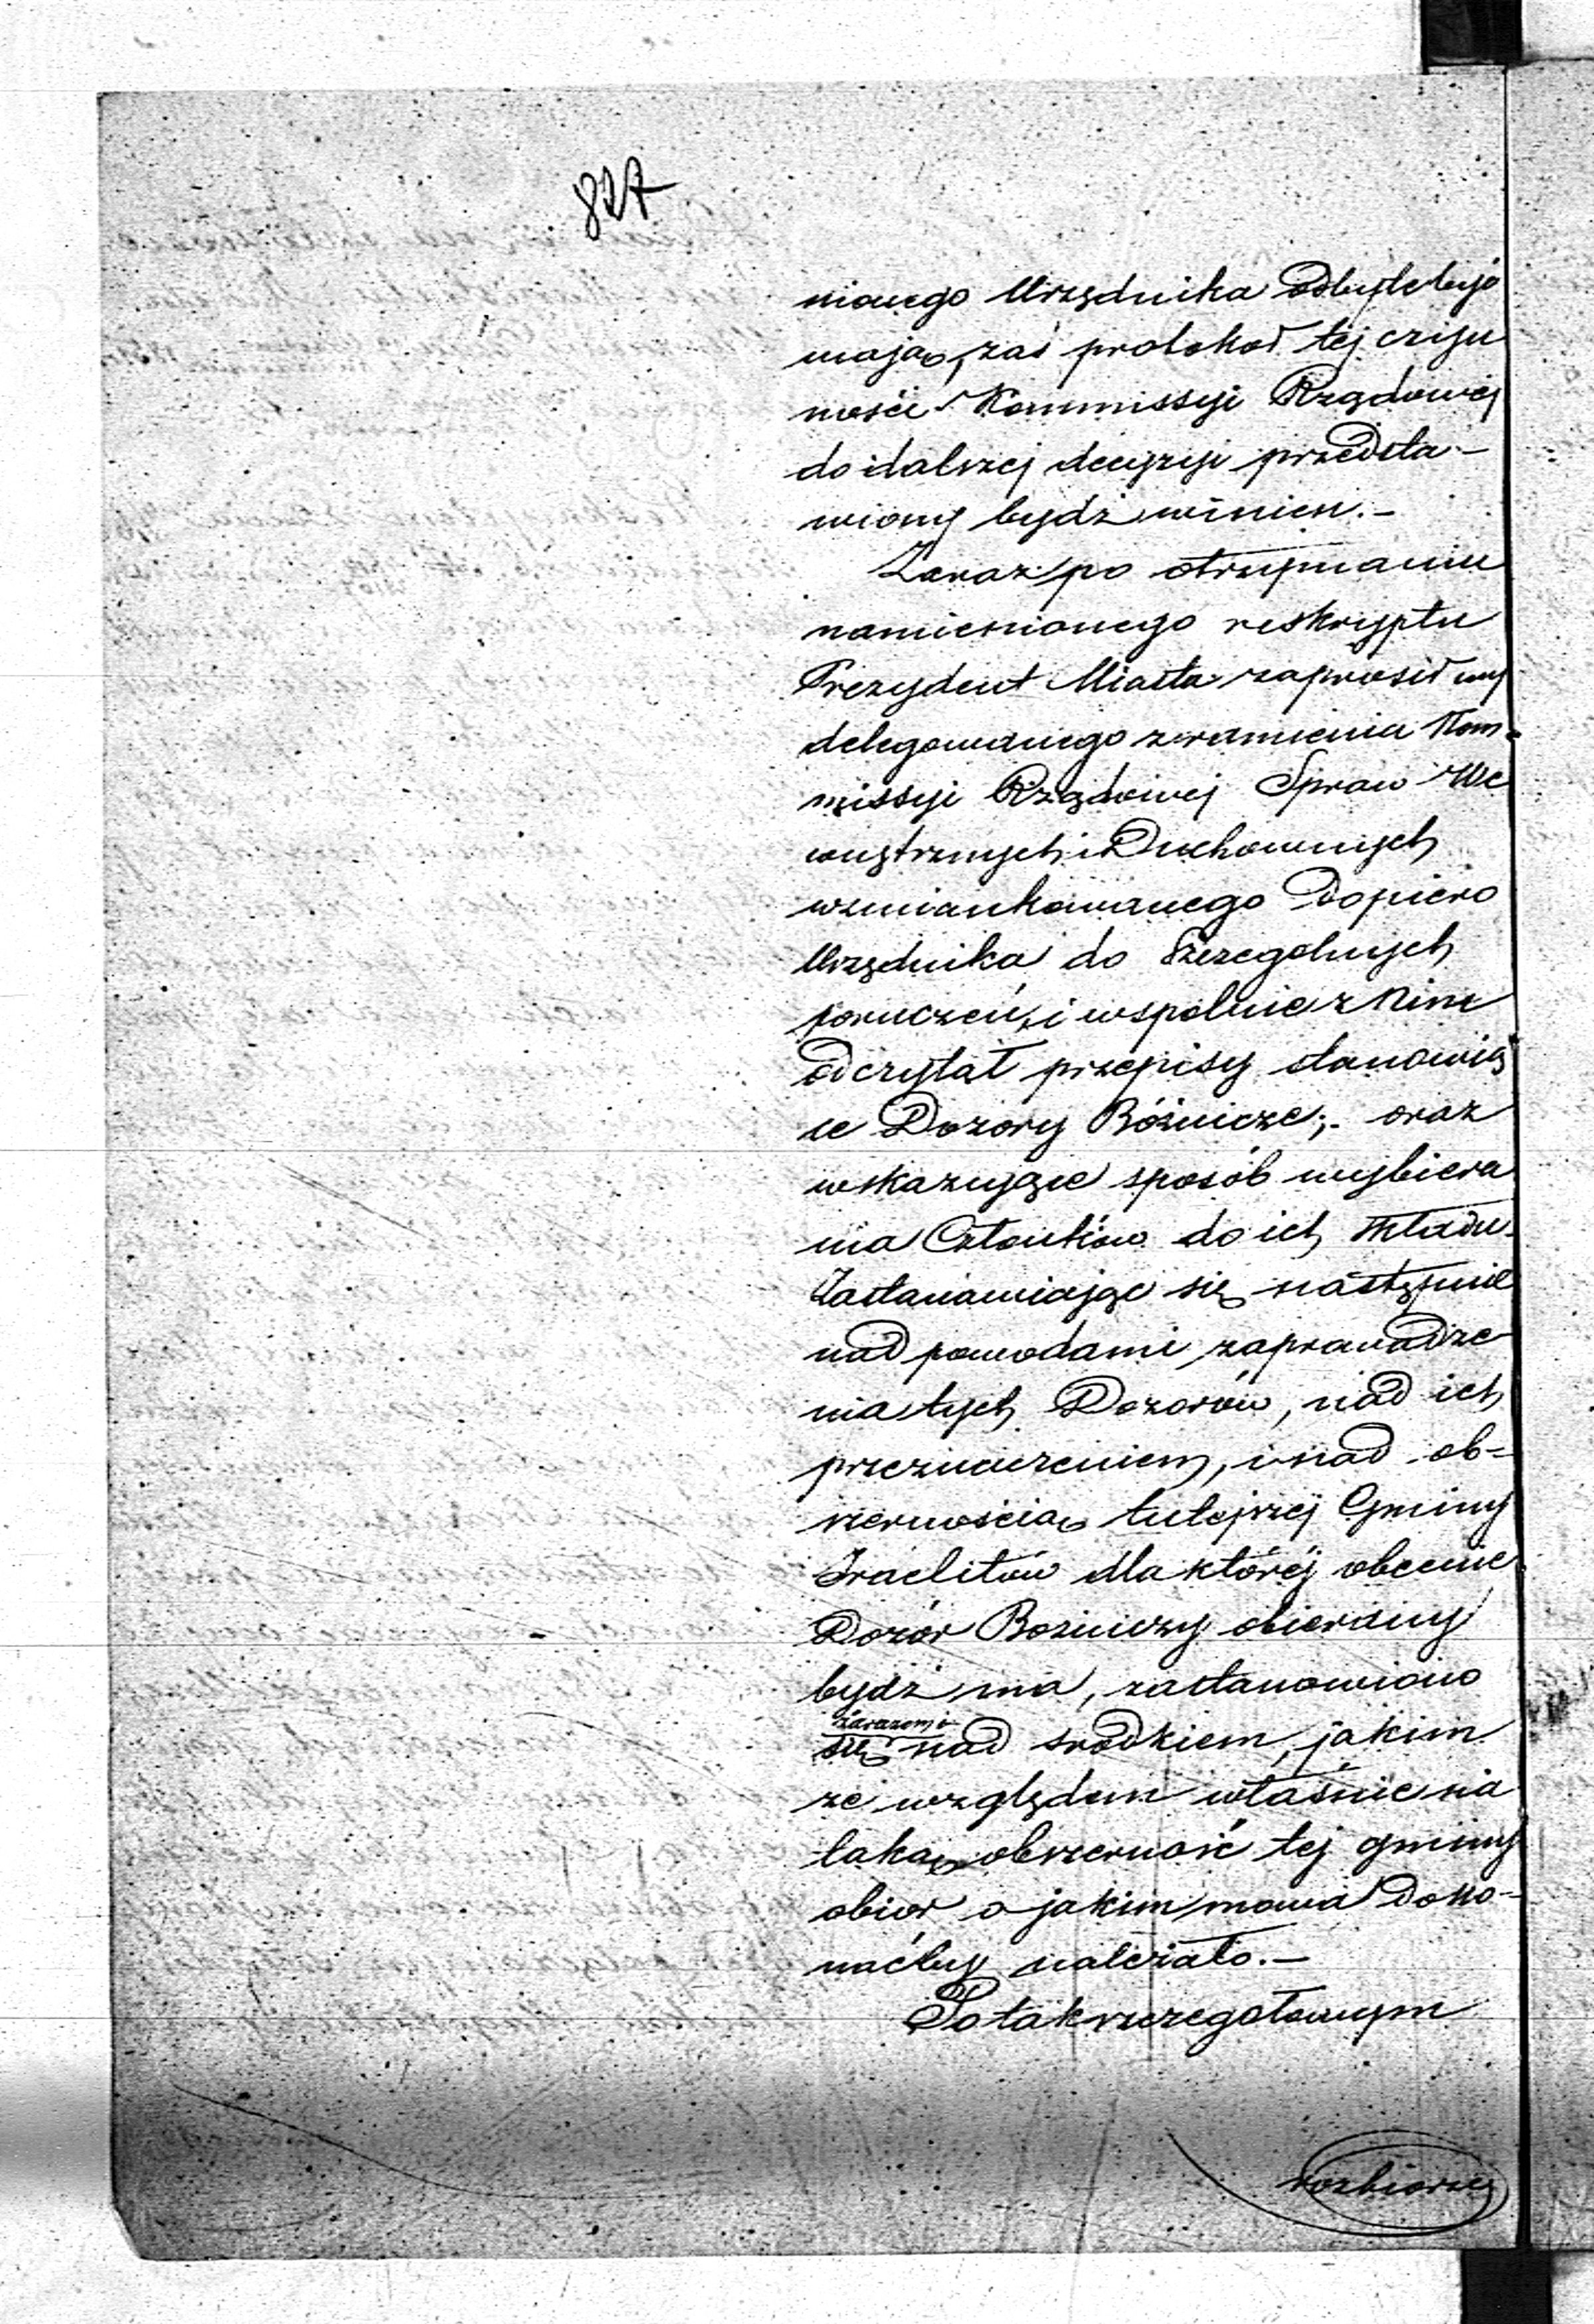 827
nionego Urzędnika odbyte bydź
mają, zaś protokoł tej czyn
ności Kommissyi Rządowej
do dalszej decyzyi przedsta-
wiony bydź winien.-
Zaraz po otrzymaniu
namienionego reskryptu
Prezydent Miasta zaprosił wy
delegowanego z ramienia Kom-
missyi Rządowej Spraw We
wnętrznych i Duchownych
wzmiankowanego dopiero
Urzędnika do Szczegolnych
poruczeń, i wspolnie z Nim
odczytał przepisy stanowią
ce Dozory Bóżnicze; oraz
wskazujące sposób wybiera
nia Członków do ich składu.
Zastanawiając się następnie
nad powodami zaprowadze
nia tych Dozorów, nad ich
przeznaczeniem, i nad ob-
szernością tutejszej Gminy
Izraelitów dla której obecnie
Dozór Bożniczy obierany
bydź ma, zastanowiono
zarazem
się nad srodkiem, jakim
ze względem właśnie na
taką obszerność tej gminy
obior o jakim mowa doko-
naćby należało.-
Po tak szczegołowym
rozbiorze